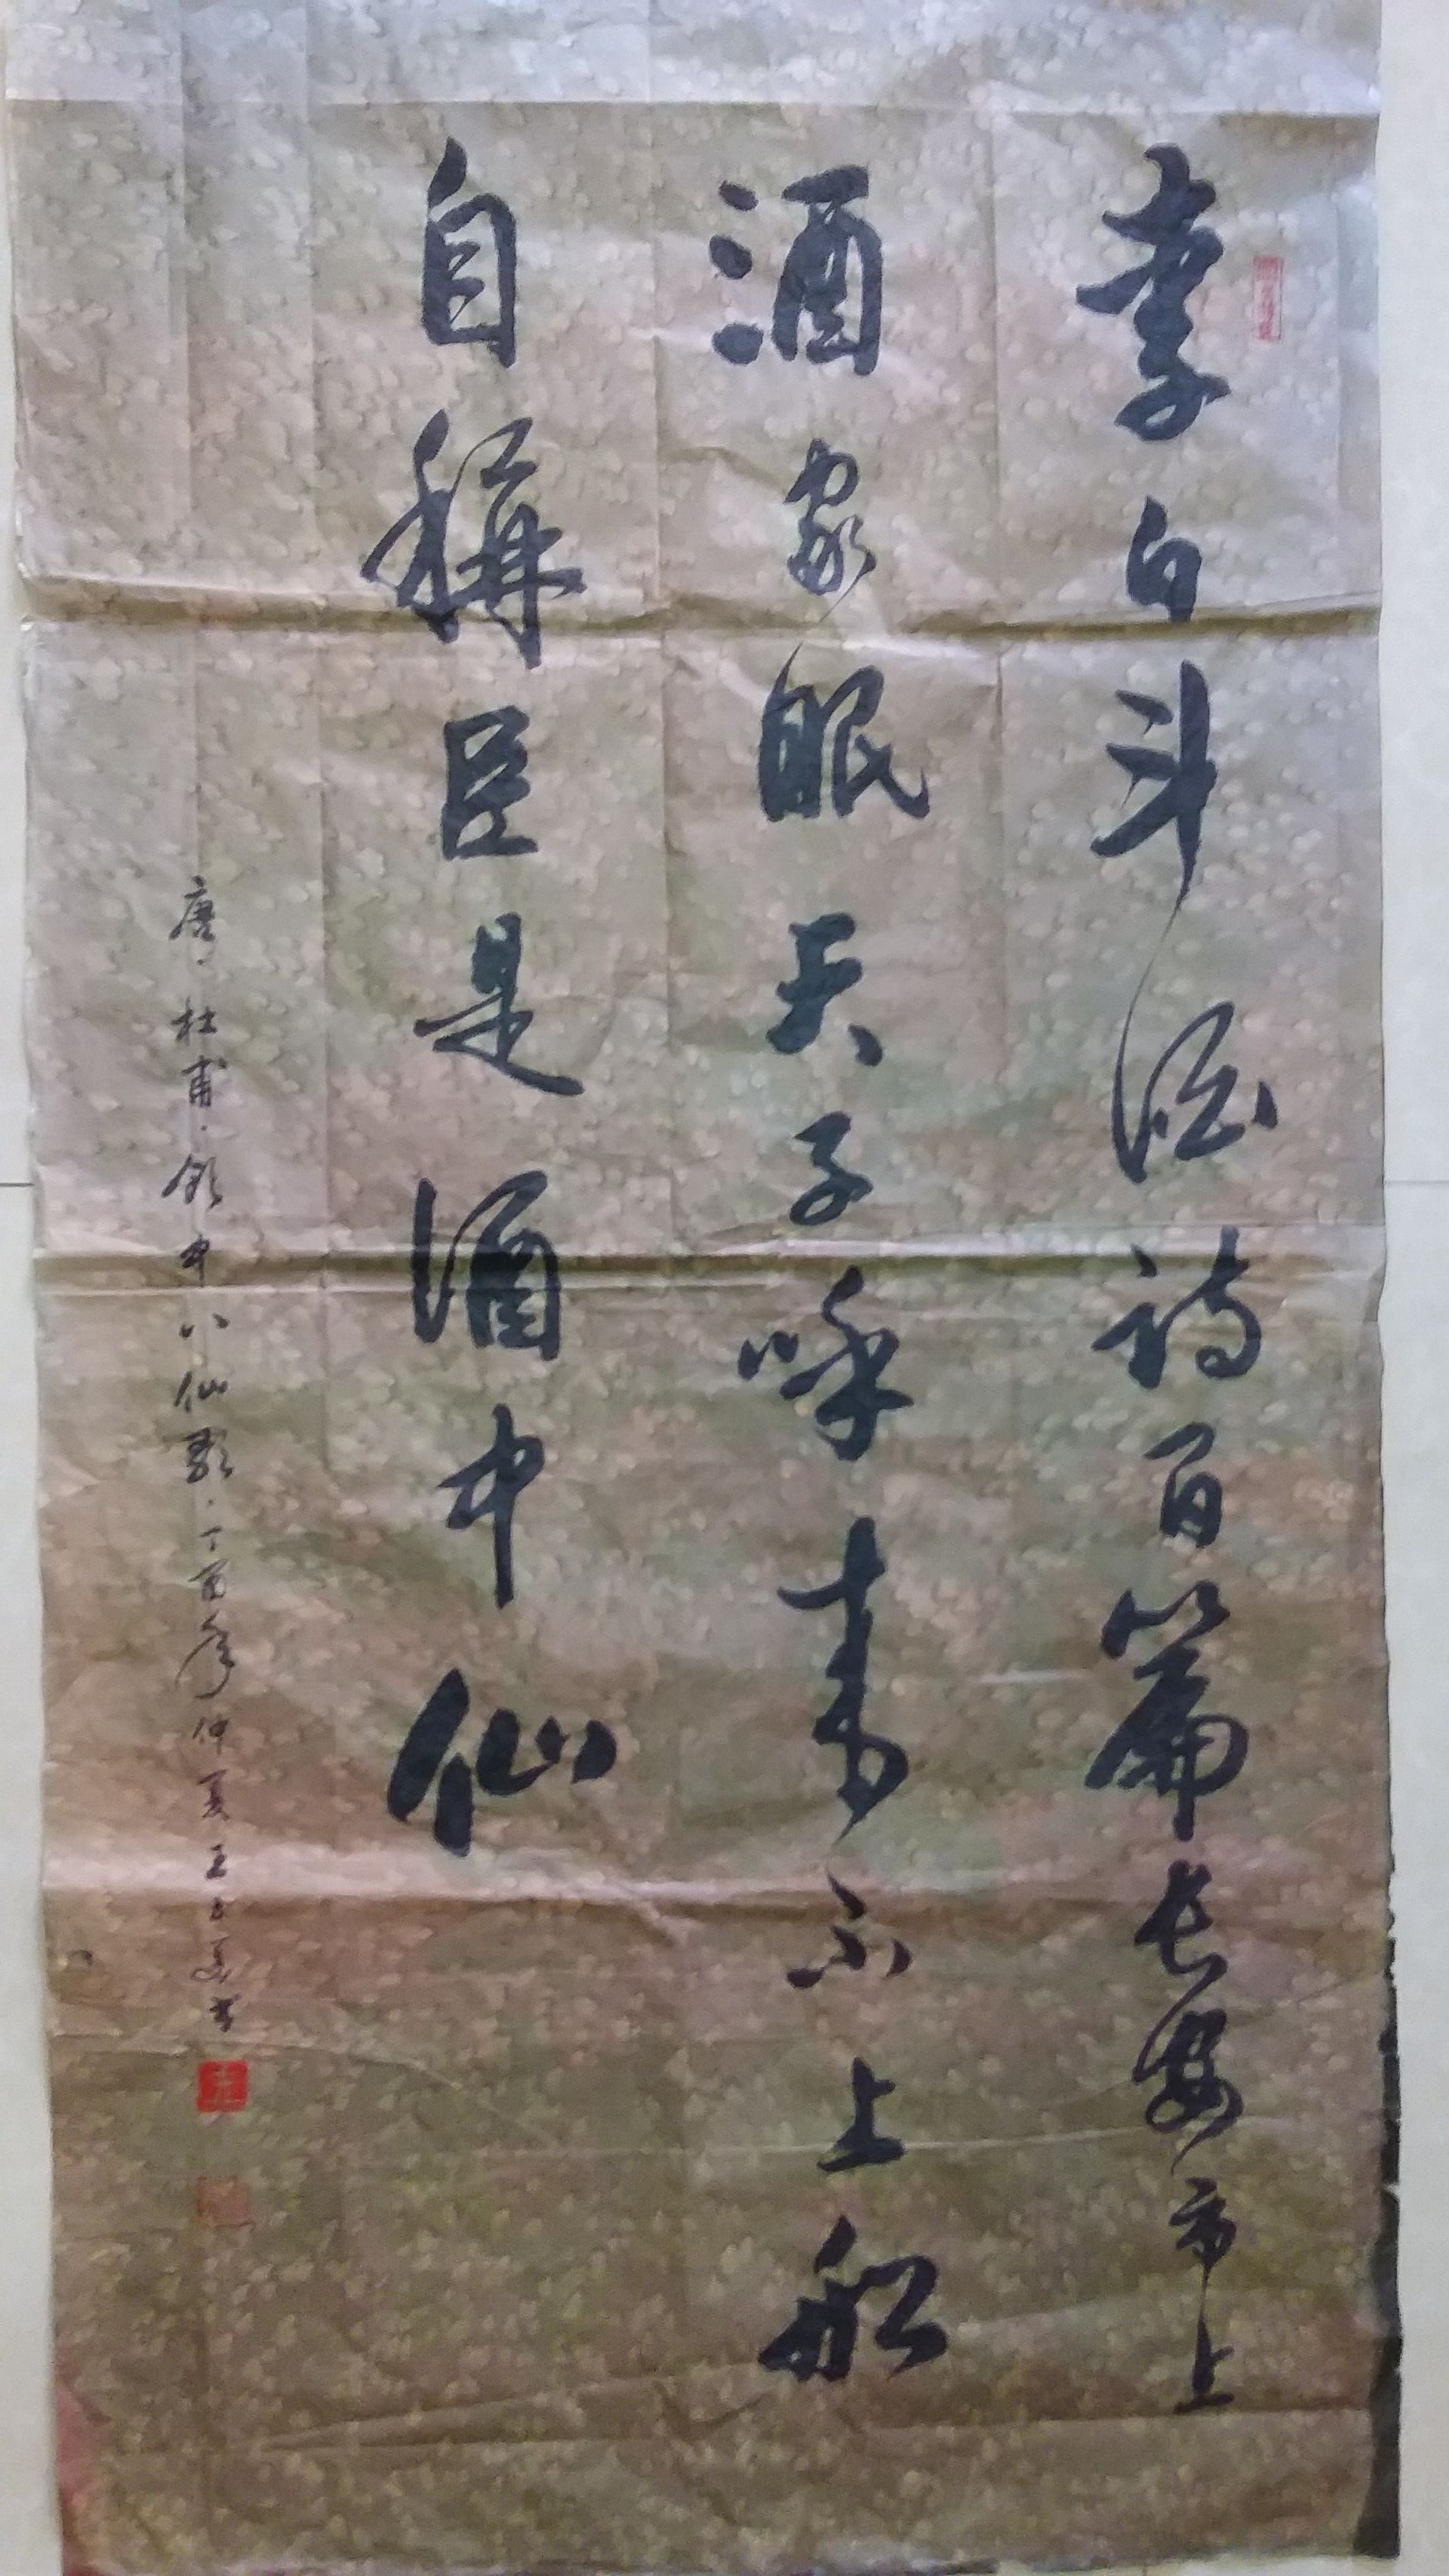 李白斗酒詩百篇長安市上
酒家眠天子呼来不上船
自稱臣是酒中仙
唐·杜甫·飲中八仙歌·丁酉年仲夏王玉書